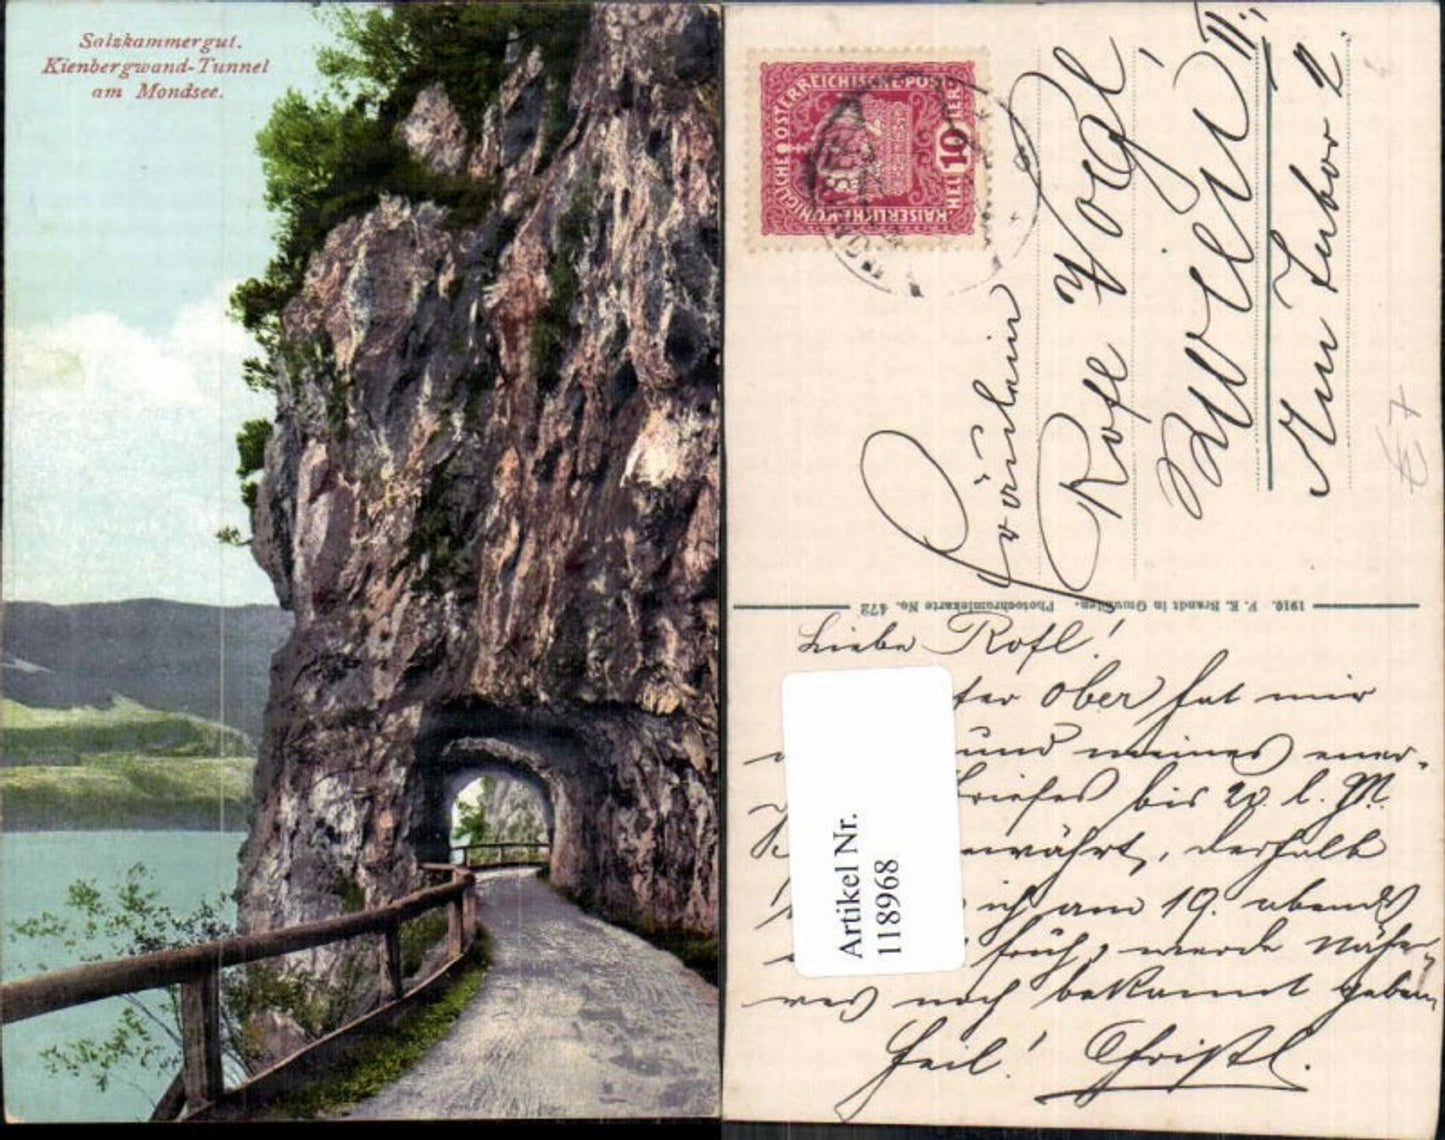 Salzkammergut.
Kienbergwand-Tunnel
am Mondsee.
KAISERLICHE KÖNIGLICHE ÖSTERREICHISCHE POST
10
Fräulein
Rosl Vogl
Wien II.,
Am Tabor 2.
€ 7
1910. F. E. Brandt in Gmunden. Photochromiekarte No. 472
Liebe Rosl!
ober hat mir
und meines
Briefes bis 20. l. M.
deshalb
ich am 19. abends
früh, werde Nähe-
res noch bekannt geben,
Heil! Christl.
Artikel Nr.
118968